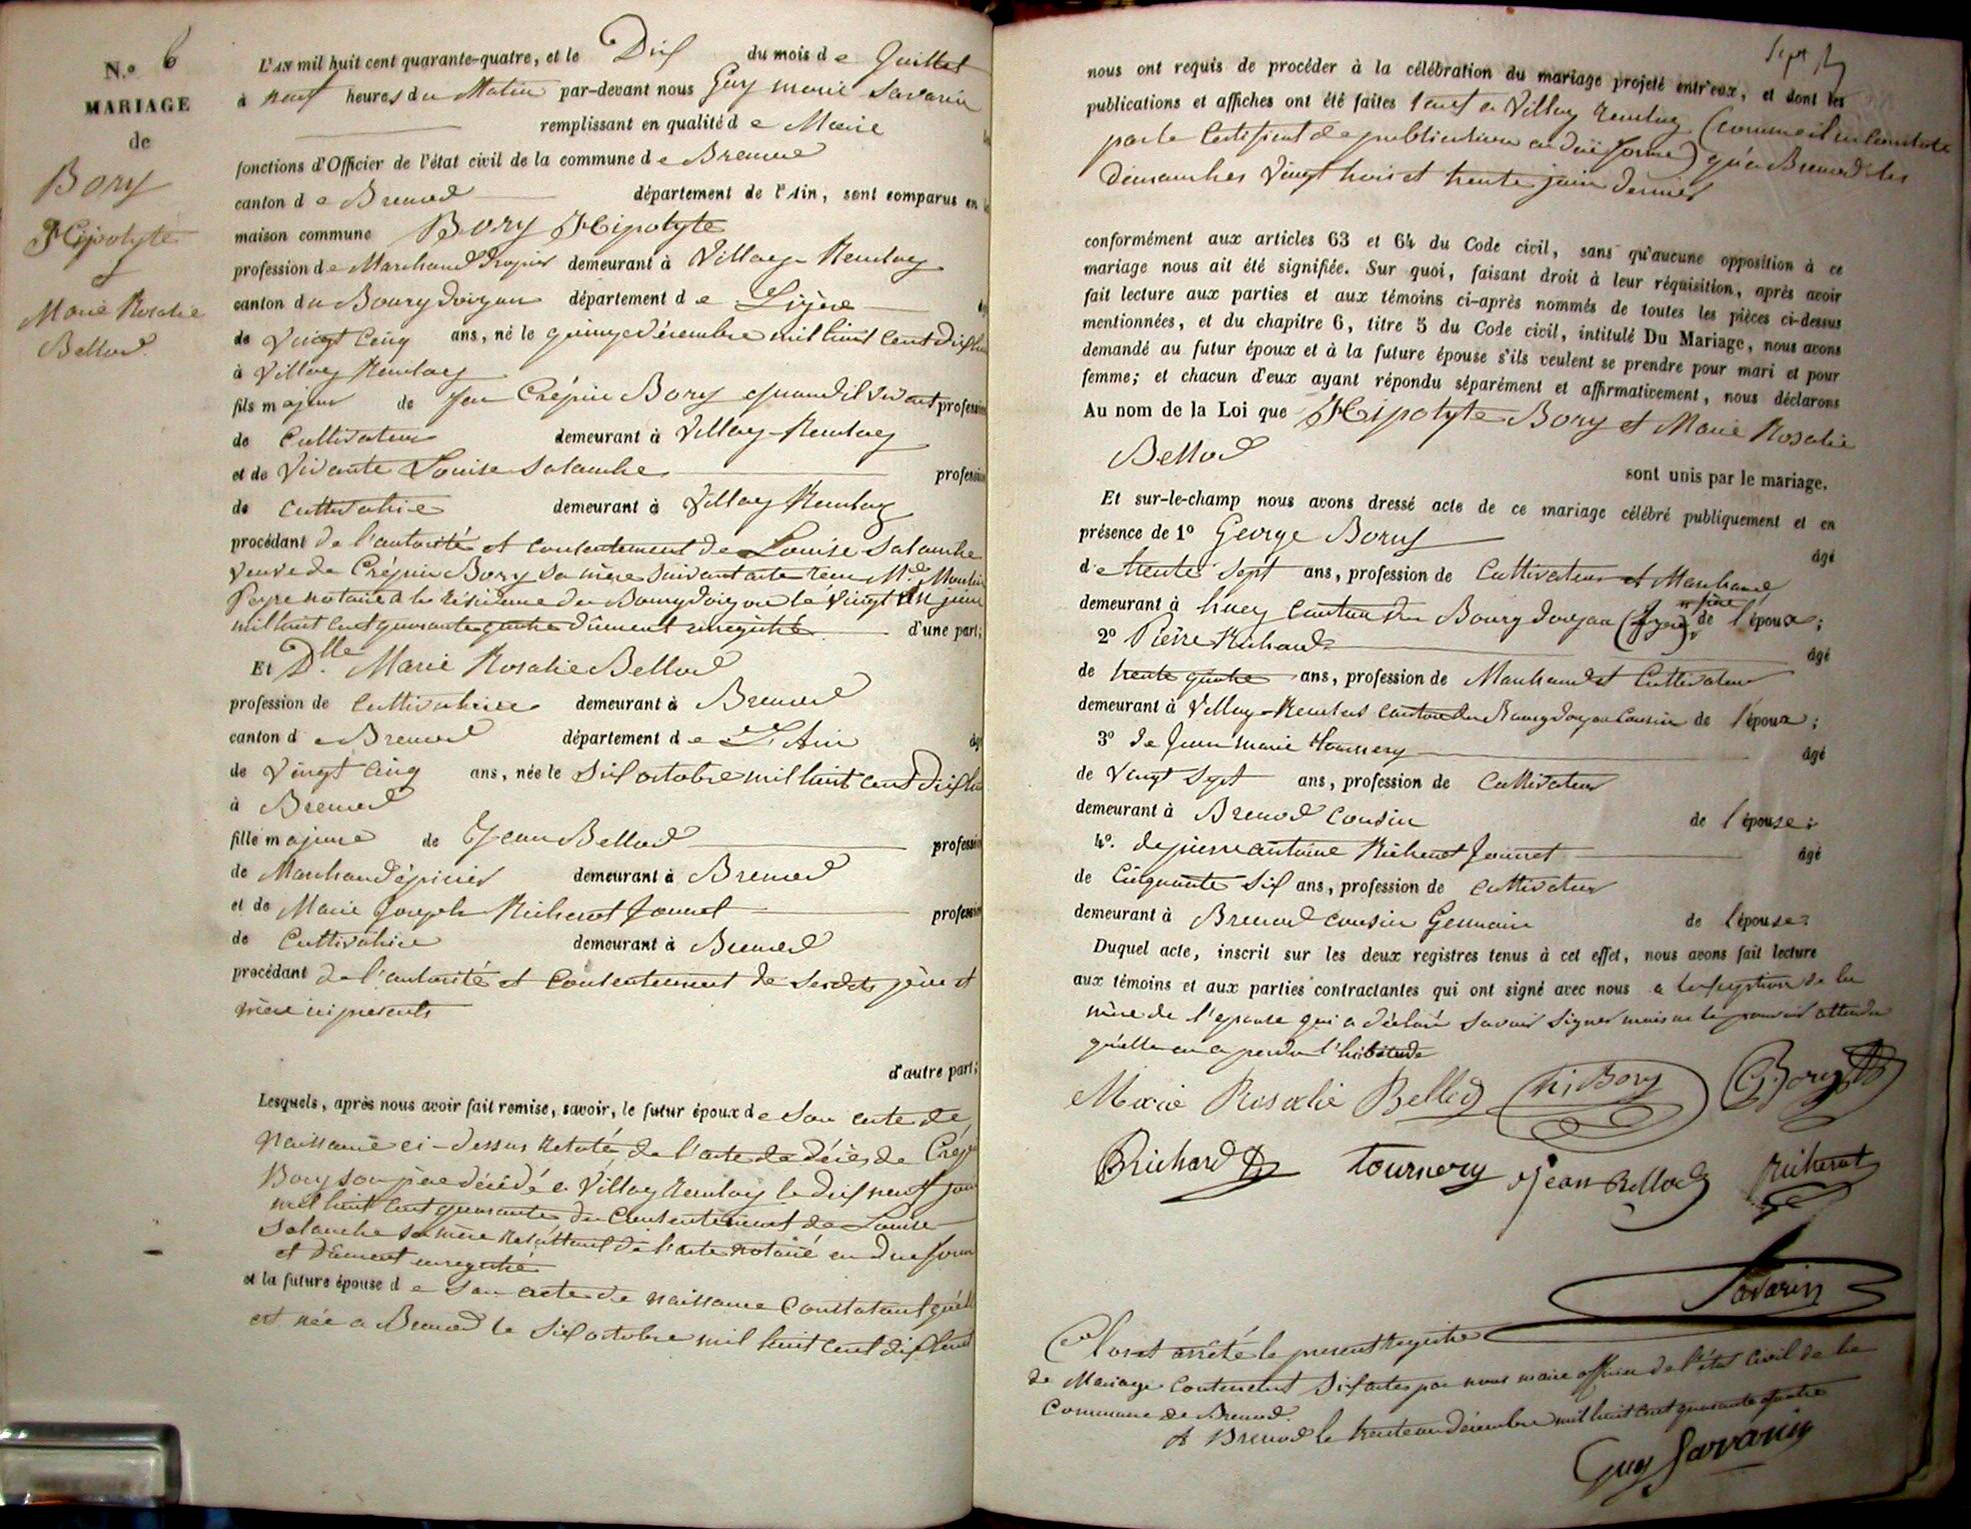 N.o 6
MARIAGE
de
Bory
Hipolyte
&
Marie Rosalie
Bellod.
L'AN mil huit cent quarante-quatre, et le Dix du mois de Juillet
à neuf heures du Matin par-devant nous Guy marie Savarin
remplissant en qualité de Maire
fonctions d'Officier de l'état civil de la commune de Brenod
canton de Brenod département de l'Ain, sont comparus en
maison commune Bory Hipolyte
profession de Marchand drapier demeurant à Villay Reculay
canton du Bourg doizan département de L'isère
de Vingt Cinq ans, né le quinze décembre mil huit cent dix huit
à Villay Reculay
fils majeur de feu Crépin Bory quand il vivant profession
de Cultivateur demeurant à Villay-Reculay
et de Vivante Louise Salanche profession
de Cultivatrice demeurant à Villay Reculay
procédant de l'autorité et consentement de Louise Salanche
veuve de Crépin Bory sa mère suivant acte reçu Me
notaire à la résidence du Bourgdoizan le vingt un juin
mil huit cent quarante quatre dûment enregistré d'une part;
Et Dlle Marie Rosalie Bellod
profession de Cultivatrice demeurant à Brenod
canton de Brenod département de L'Ain
de Vingt Cinq ans, née le Six octobre mil huit cent dix huit
à Brenod
fille majeure de Jean Bellod profession
de Marchand épicier demeurant à Brenod
et de Marie Joseph Richerot Jannet profession
de Cultivatrice demeurant à Brenod
procédant de l'autorité et Consentement de sesdits père et
mère ici présents
d'autre part;
Lesquels, après nous avoir fait remise, savoir, le futur époux de Son acte de
naissance ci-dessus relaté, de l'acte de décès de Crépin
Bory son père décédé à Villay Reculay le dix neuf
mil huit cent quarante du Consentement de Louise
Salanche sa mère résultant de l'acte notarié en due forme
et dûment enregistré
et la future épouse de Son acte de naissance Constatant qu'elle
est née à Brenod le Six octobre mil huit cent dix huit
Sept
nous ont requis de procéder à la célébration du mariage projeté entr'eux, et dont les
publications et affiches ont été faites tant à Villay Reculay (comme il en constate
par le Certificat de publication en due forme) qu'à Brenod les
dimanches Vingt trois et trente juin dernier
conformément aux articles 63 et 64 du Code civil, sans qu'aucune opposition à ce
mariage nous ait été signifiée. Sur quoi, faisant droit à leur réquisition, après avoir
fait lecture aux parties et aux témoins ci-après nommés de toutes les pièces ci-dessus
mentionnées, et du chapitre 6, titre 5 du Code civil, intitulé Du Mariage, nous avons
demandé au futur époux et à la future épouse s'ils veulent se prendre pour mari et pour
femme; et chacun d'eux ayant répondu séparément et affirmativement, nous déclarons
Au nom de la Loi que Hipolyte Bory et Marie Rosalie
Bellod
sont unis par le mariage.
Et sur-le-champ nous avons dressé acte de ce mariage célébré publiquement et en
présence de 1o George Bory âgé
de trente Sept ans, profession de Cultivateur et Marchand
demeurant à huez Canton du Bourg doizan frère de l'époux;
2o Pierre Richard âgé
de trente quatre ans, profession de Marchand et Cultivateur
demeurant à Villay-Reculas canton du Bourgdoizan Cousin de l'époux;
3o de Jean marie Tournery âgé
de Vingt Sept ans, profession de Cultivateur
demeurant à Brenod Cousin de l'épouse;
4o. de pierre antoine Richerot Jannet âgé
de Cinquante Six ans, profession de cultivateur
demeurant à Brenod cousin Germain de l'épouse:
Duquel acte, inscrit sur les deux registres tenus à cet effet, nous avons fait lecture
aux témoins et aux parties contractantes qui ont signé avec nous à l'exception de la
mère de l'epouse qui a déclaré savoir signer mais ne le pouvoir attendu
qu'elle en a perdu l'habitude
Marie Rosalie Bellod hi Bory G Bory
P Richard tournery Jean Bellod Richerot
Savarin
Clos et arrêté le présent registre
de Mariage Contenant Six actes par nous maire officier de l'état civil de la
Commune de Brenod.
A Brenod le trente un décembre mil huit cent quarante quatre
Guy Savarin